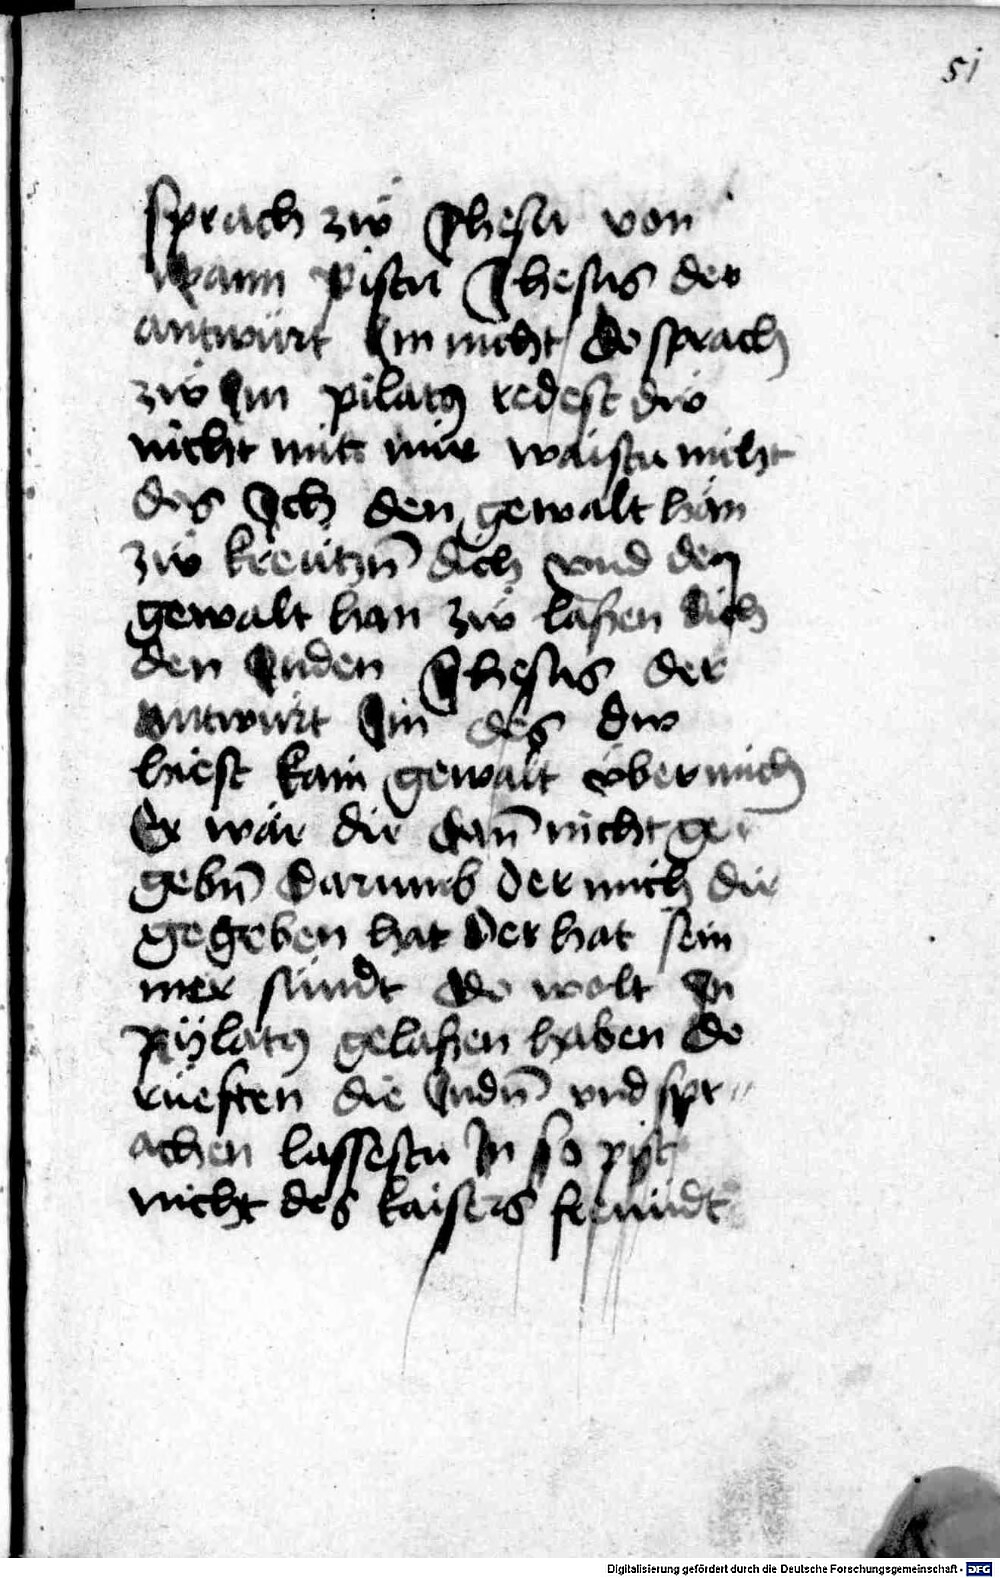 51
sprach zů Jhesu von
wann pistu Jhesus der
antwurt Im nicht do sprach
zů Im pilatꝰ redest dů
nicht mit mir waistu nicht
das Ich den gewalt han
zů kreützn̄ dich vnd den
gewalt han zů laſſen dich
den Juden Jhesus der
antwürt Im des dw
hiest kain gewalt über mich
Er wär dir dan̄ nicht ge
gebn̄ darumb der mich dir
gegeben hat der hat sein
mer sündt do wolt In
pÿlatꝰ gelaſſen haben do
rüeften die Judn̄ vnd spr〃
achen lassestu In so pist
nicht des kaisers freündt
Digitalisierung gefördert durch die Deutsche Forschungsgemeinschaft - DFG